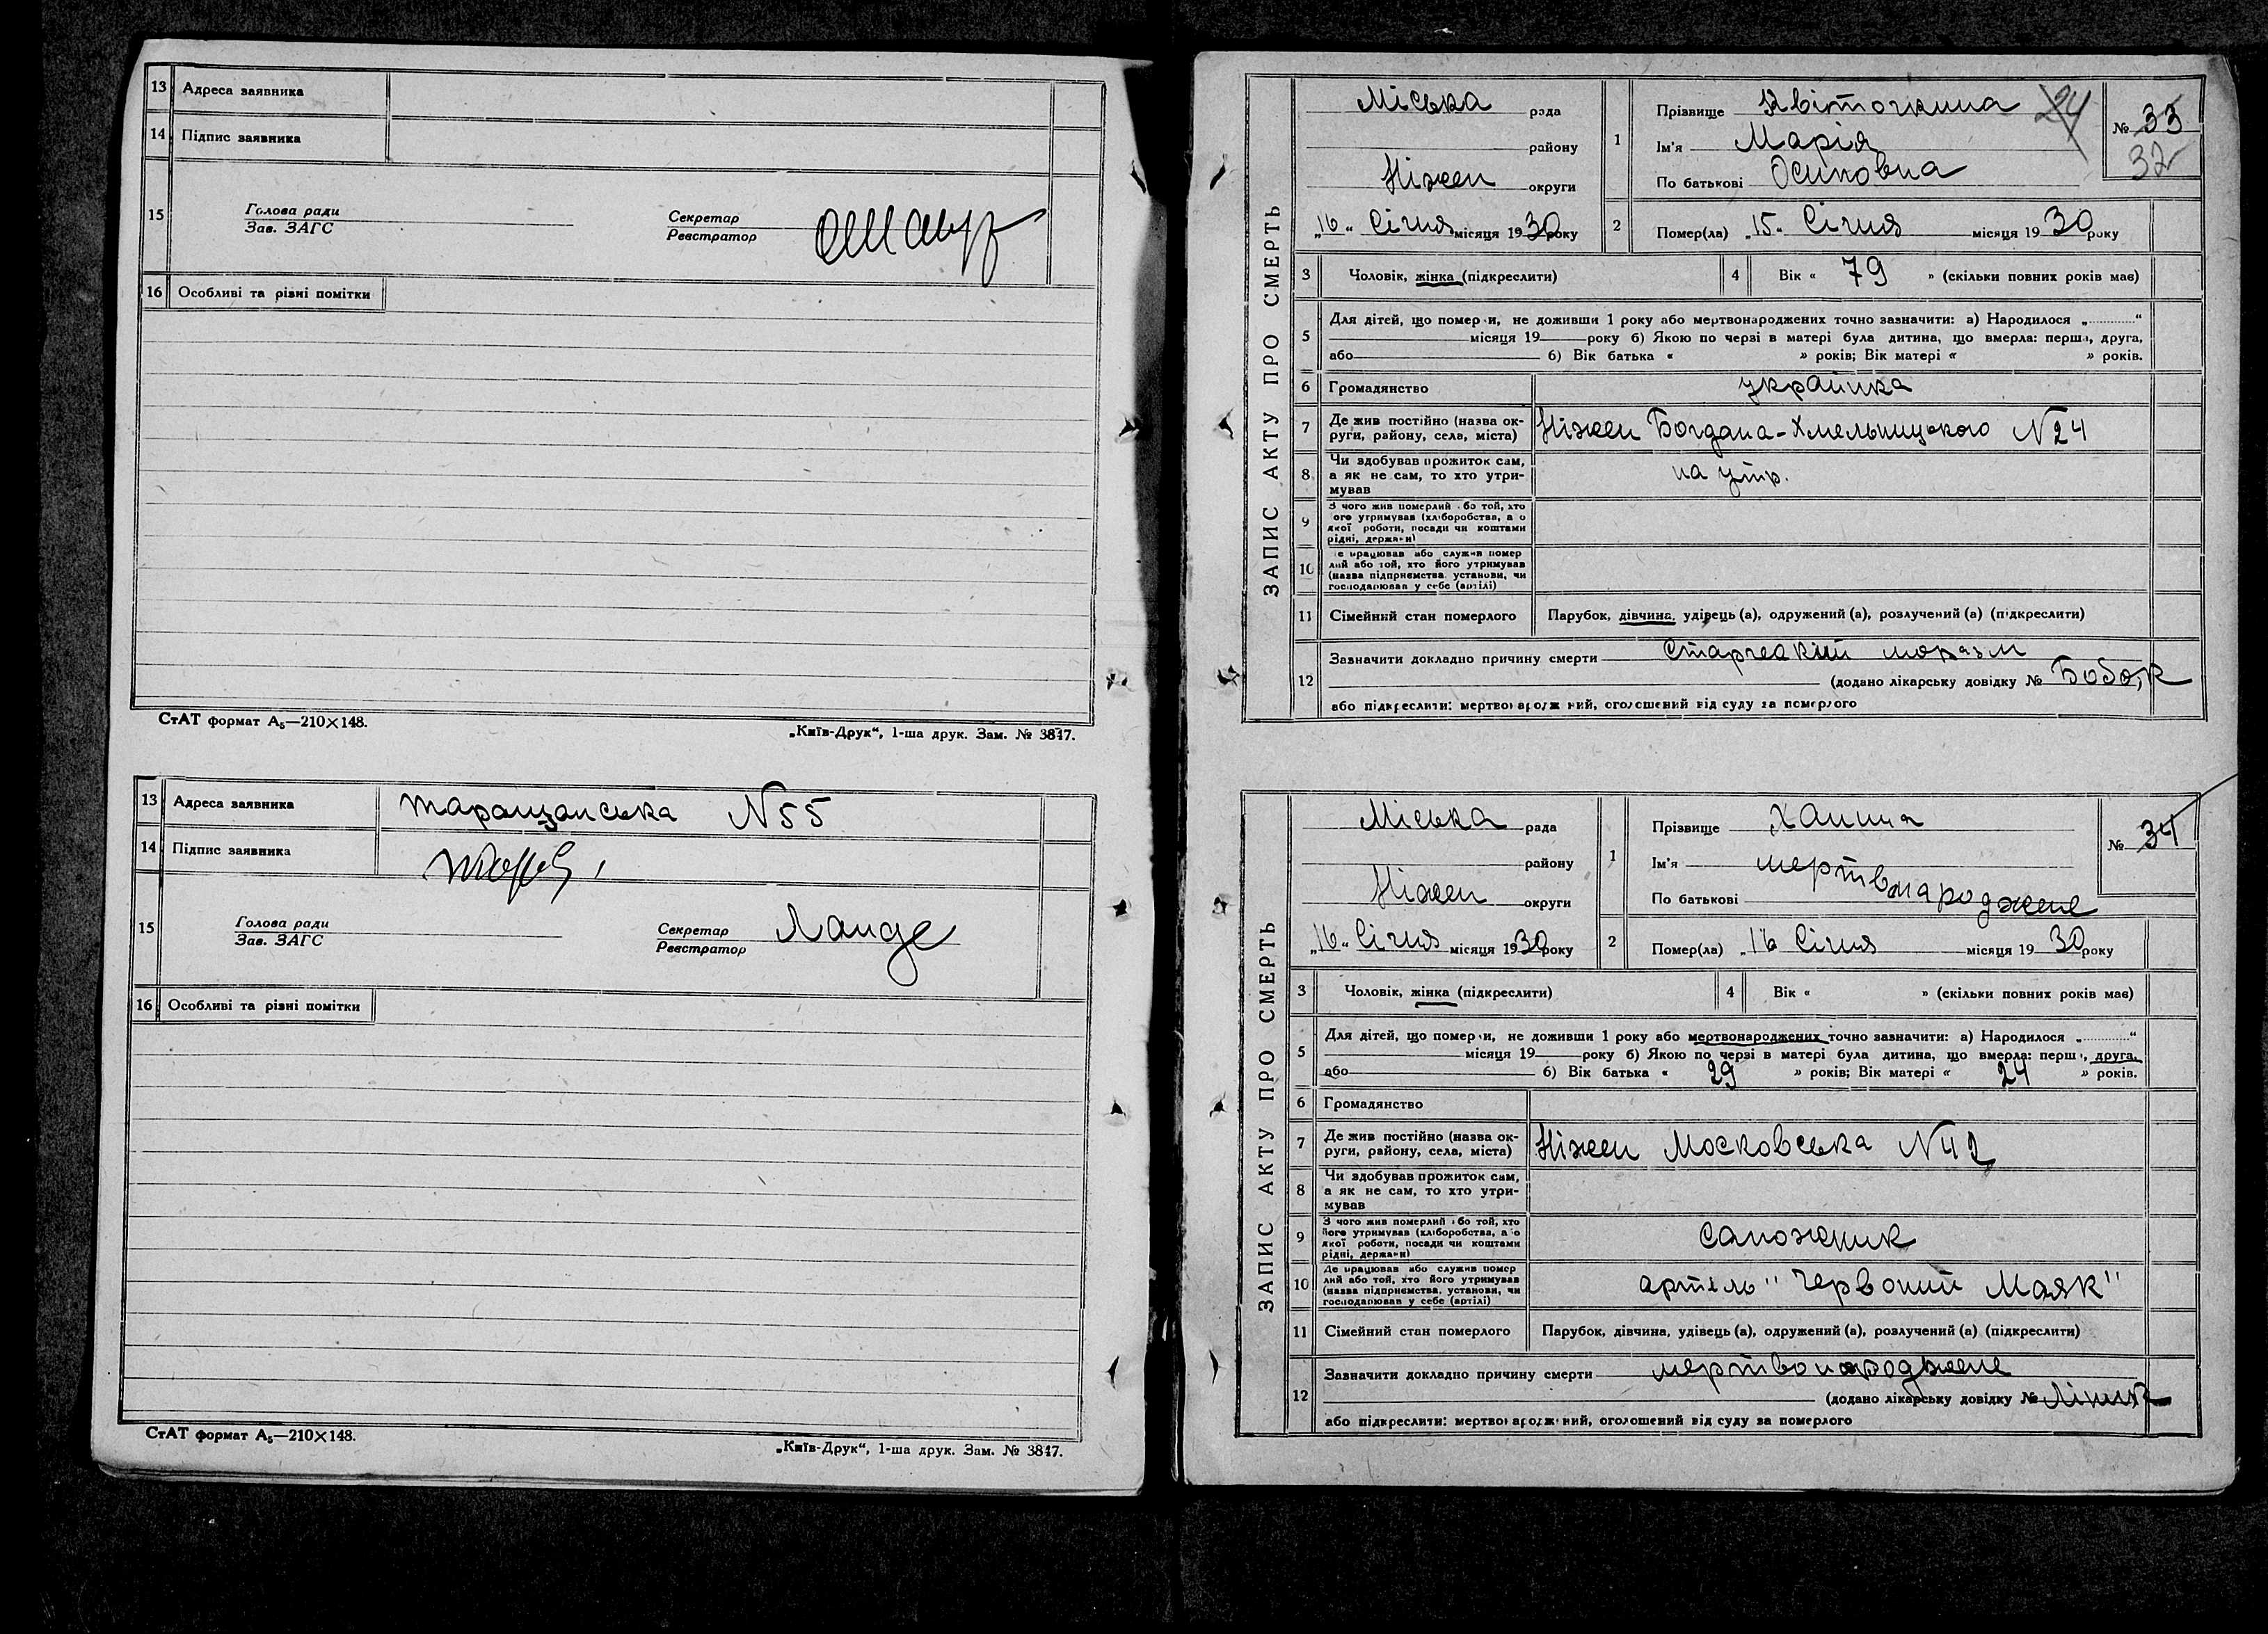 13 Адреса заявника
14 Підпис заявника
15 Голова ради
Зав. ЗАГС
Секретар
Реєстратор
16 Особливі та різні помітки
СтАТ формат А₅—210×148.
„Київ-Друк“, 1-ша друк. Зам. № 3847.
13 Адреса заявника Таращанська N 55
14 Підпис заявника
15 Голова ради
Зав. ЗАГС
Секретар
Реєстратор
Ланде
16 Особливі та різні помітки
СтАТ формат А₅—210×148.
„Київ-Друк“, 1-ша друк. Зам. № 3847.
ЗАПИС АКТУ ПРО СМЕРТЬ
Міська рада
району
Ніжен округи
„16“ Січня місяця 1930 року
1 Прізвище Квіточкина 24
Ім'я Марія
По батькові Осиповна
№ 33
32
2 Помер(ла) „15“ Січня місяця 1930 року
3 Чоловік, жінка (підкреслити)
4 Вік « 79 » (скільки повних років має)
5 Для дітей, що померли, не доживши 1 року або мертвонароджених точно зазначити: а) Народилося „ “
місяця 19 року б) Якою по черзі в матері була дитина, що вмерла: перша, друга,
або б) Вік батька « » років; Вік матері « » років.
6 Громадянство українка
7 Де жив постійно (назва округи, району, села, міста) Ніжен Богдана-Хмельницького N 24
8 Чи здобував прожиток сам, а як не сам, то хто утримував на утр.
9 З чого жив померлий або той, хто його утримував (хліборобства, або якої роботи, посади чи коштами рідні, держави)
10 Де працював або служив померлий або той, хто його утримував (назва підприємства, установи, чи господарював у себе (артілі)
11 Сімейний стан померлого Парубок, дівчина, удівець (а), одружений (а), розлучений (а) (підкреслити)
12 Зазначити докладно причину смерти Старческий моразм
(додано лікарську довідку №
або підкреслити: мертвонароджений, оголошений від суду за померлого
ЗАПИС АКТУ ПРО СМЕРТЬ
Міська рада
району
Ніжен округи
„16“ Січня місяця 1930 року
1 Прізвище Ханина
Ім'я мертвонароджене
По батькові
№ 34
2 Помер(ла) „16 Січня місяця 1930 року
3 Чоловік, жінка (підкреслити)
4 Вік « » (скільки повних років має)
5 Для дітей, що померли, не доживши 1 року або мертвонароджених точно зазначити: а) Народилося „ “
місяця 19 року б) Якою по черзі в матері була дитина, що вмерла: перша, друга,
або б) Вік батька « 29 » років; Вік матері « 24 » років.
6 Громадянство
7 Де жив постійно (назва округи, району, села, міста) Ніжен Московська N 42
8 Чи здобував прожиток сам, а як не сам, то хто утримував
9 З чого жив померлий або той, хто його утримував (хліборобства, або якої роботи, посади чи коштами рідні, держави) сапожник
10 Де працював або служив померлий або той, хто його утримував (назва підприємства, установи, чи господарював у себе (артілі) артель "Червоний Маяк"
11 Сімейний стан померлого Парубок, дівчина, удівець (а), одружений (а), розлучений (а) (підкреслити)
12 Зазначити докладно причину смерти мертвонароджене
(додано лікарську довідку №
або підкреслити: мертвонароджений, оголошений від суду за померлого